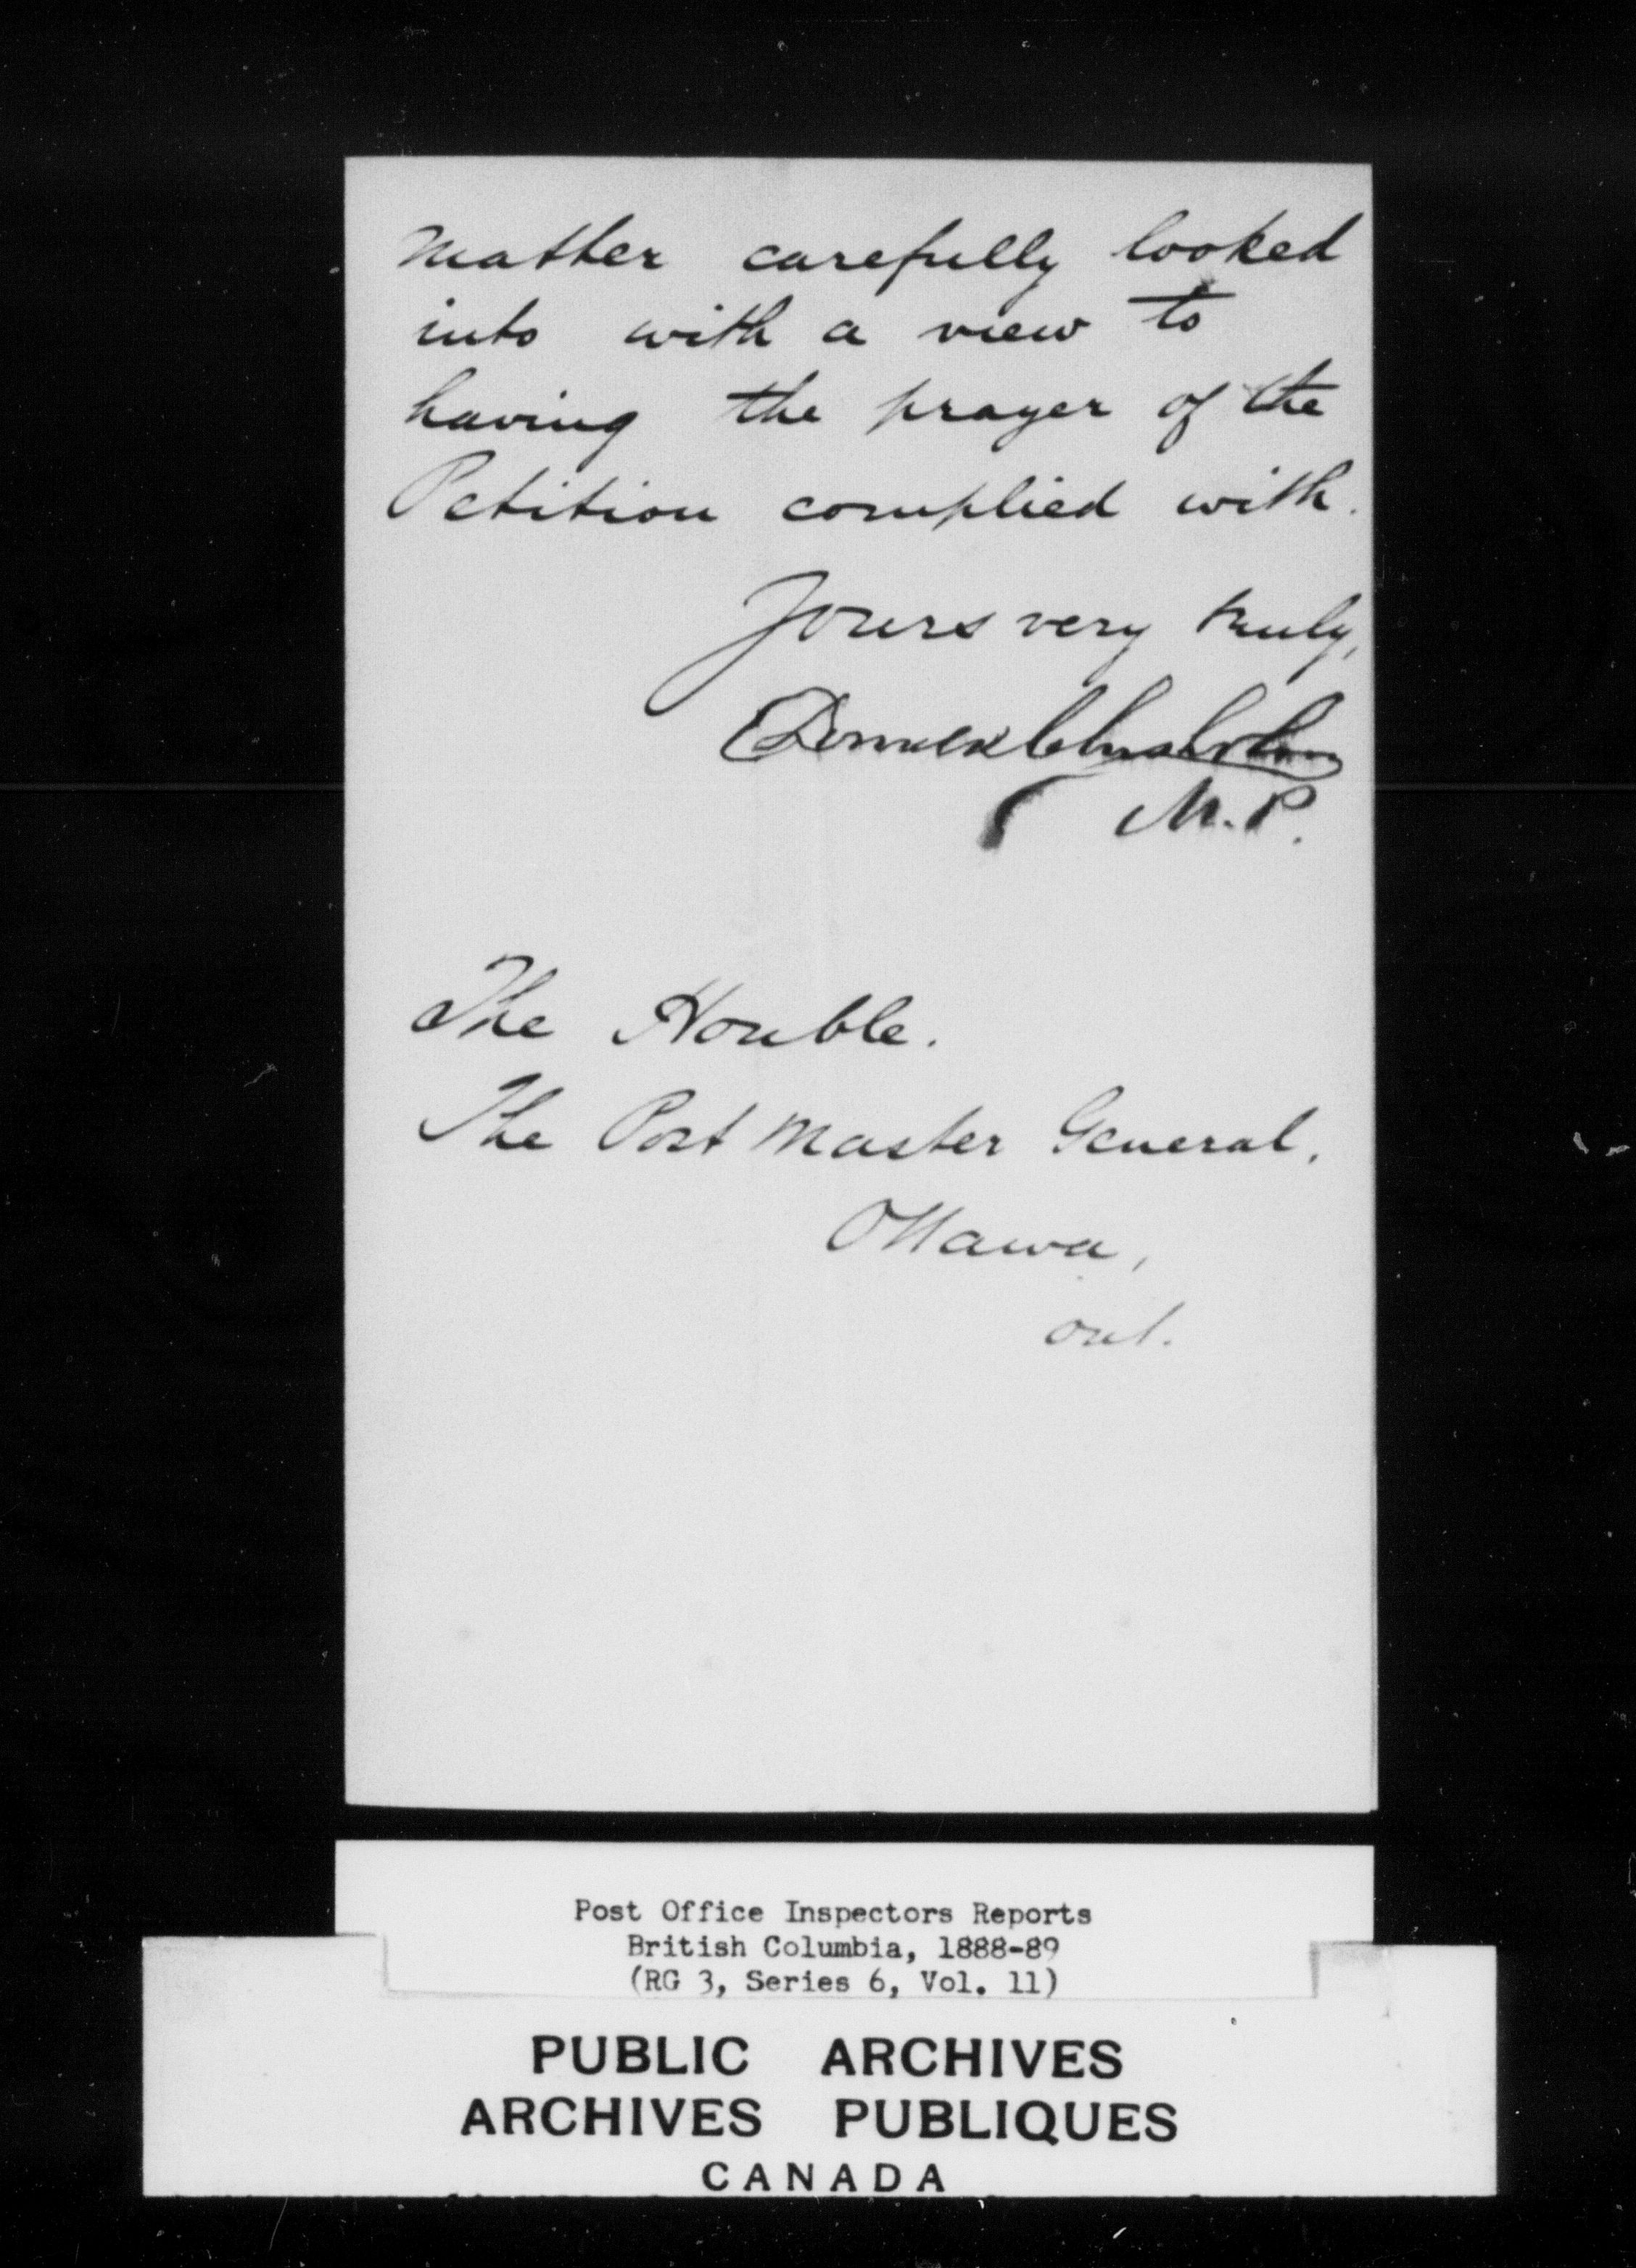 matter carefully looked
into with a view to
having the prayer of the
Petition complied with.
Yours very truly,
Donald Chisholm
M.P.
The Honble.
The Post Master General.
Ottawa,
Ont.
Post Office Inspectors Reports
British Columbia, 1888-89
(RG 3, Series 6, Vol. 11)
PUBLIC ARCHIVES
ARCHIVES PUBLIQUES
CANADA